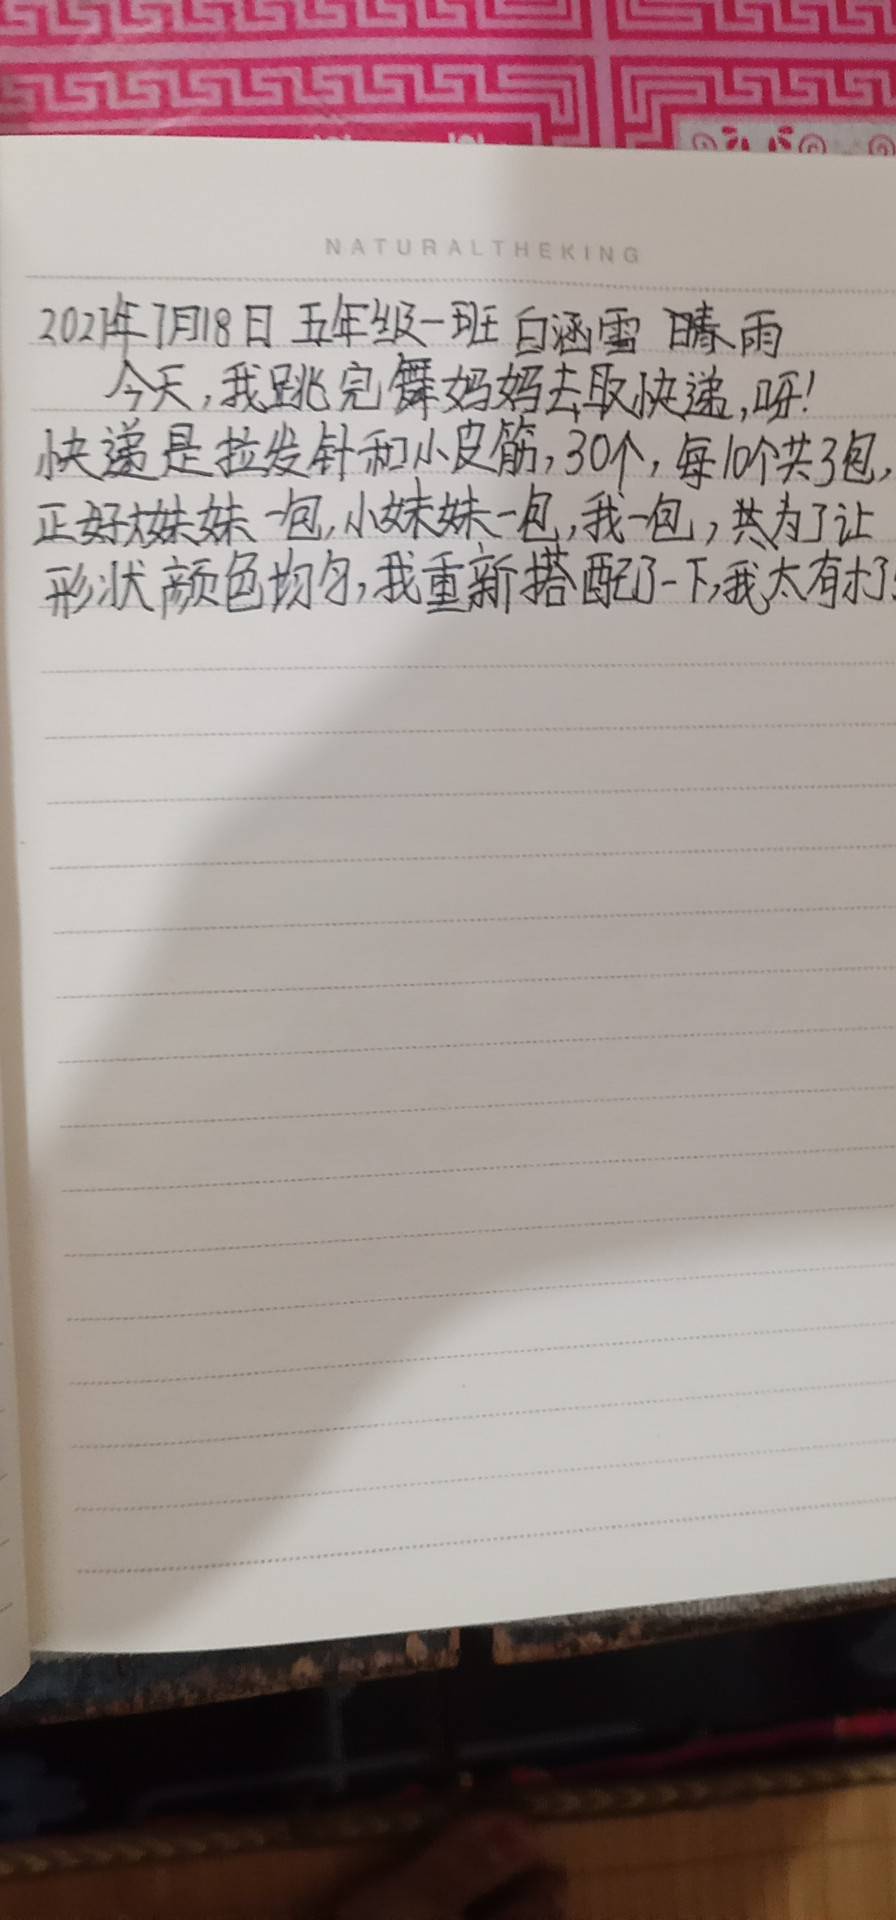 NATURALTHEKING
2021年7月18日 五年级一班 白涵雪 晴雨
今天,我跳完舞妈妈去取快递,呀!
快递是拉发针和小皮筋,30个,每10个共3包,
正好大妹妹一包,小妹妹一包,我一包,共为了让
形状颜色均匀,我重新搭配了一下,我太有才了